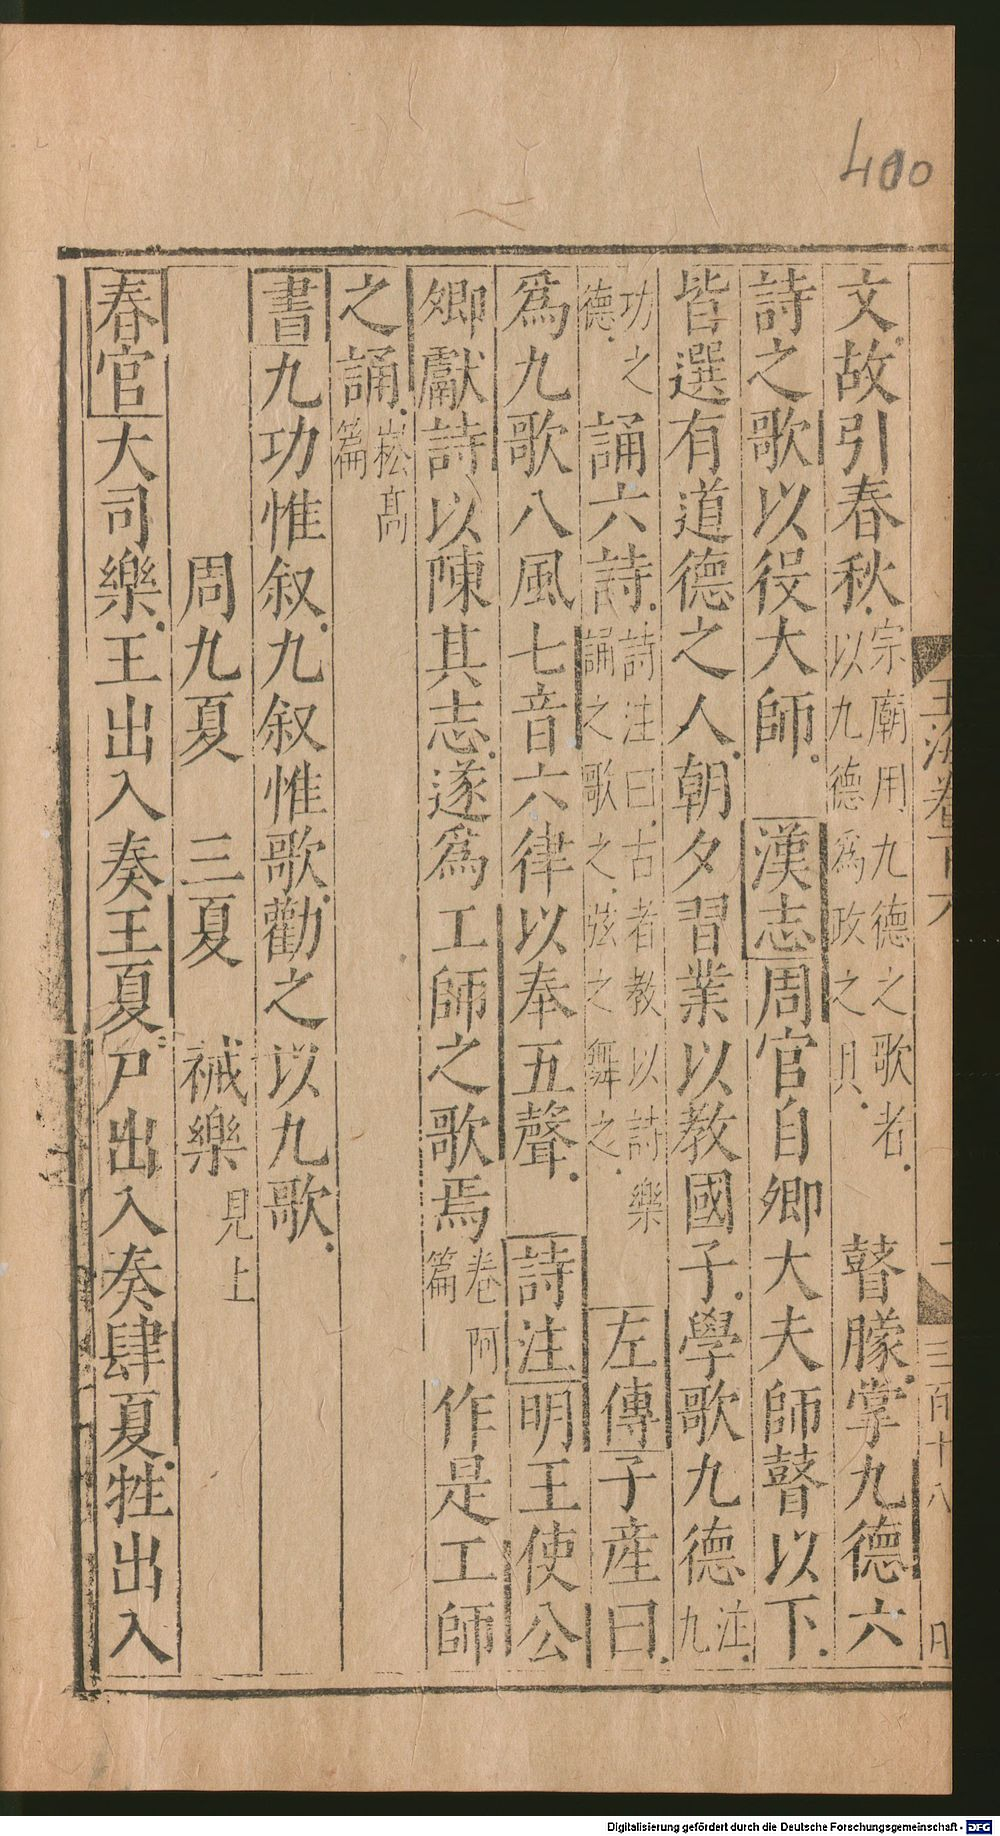 400
文故引春秋宗廟用九德之歌者以九德為政之具瞽矇掌九德六
詩之歌以役大師漢志周官自卿大夫師瞽以下
皆選有道德之人朝夕習業以教國子學歌九德注九
功之德誦六詩詩注曰古者教以詩樂誦之歌之弦之舞之左傳子産曰
爲九歌八風七音六律以奉五聲詩注明王使公
卿獻詩以陳其志遂爲工師之歌焉卷阿篇作是工師
之誦崧髙篇
書九功惟叙九叙惟歌勸之以九歌
周九夏 三夏 祴樂見上
春官大司樂王出入奏王夏尸出入奏肆夏牲出入
三百十八
Digitalisierung gefördert durch die Deutsche Forschungsgemeinschaft - DFG